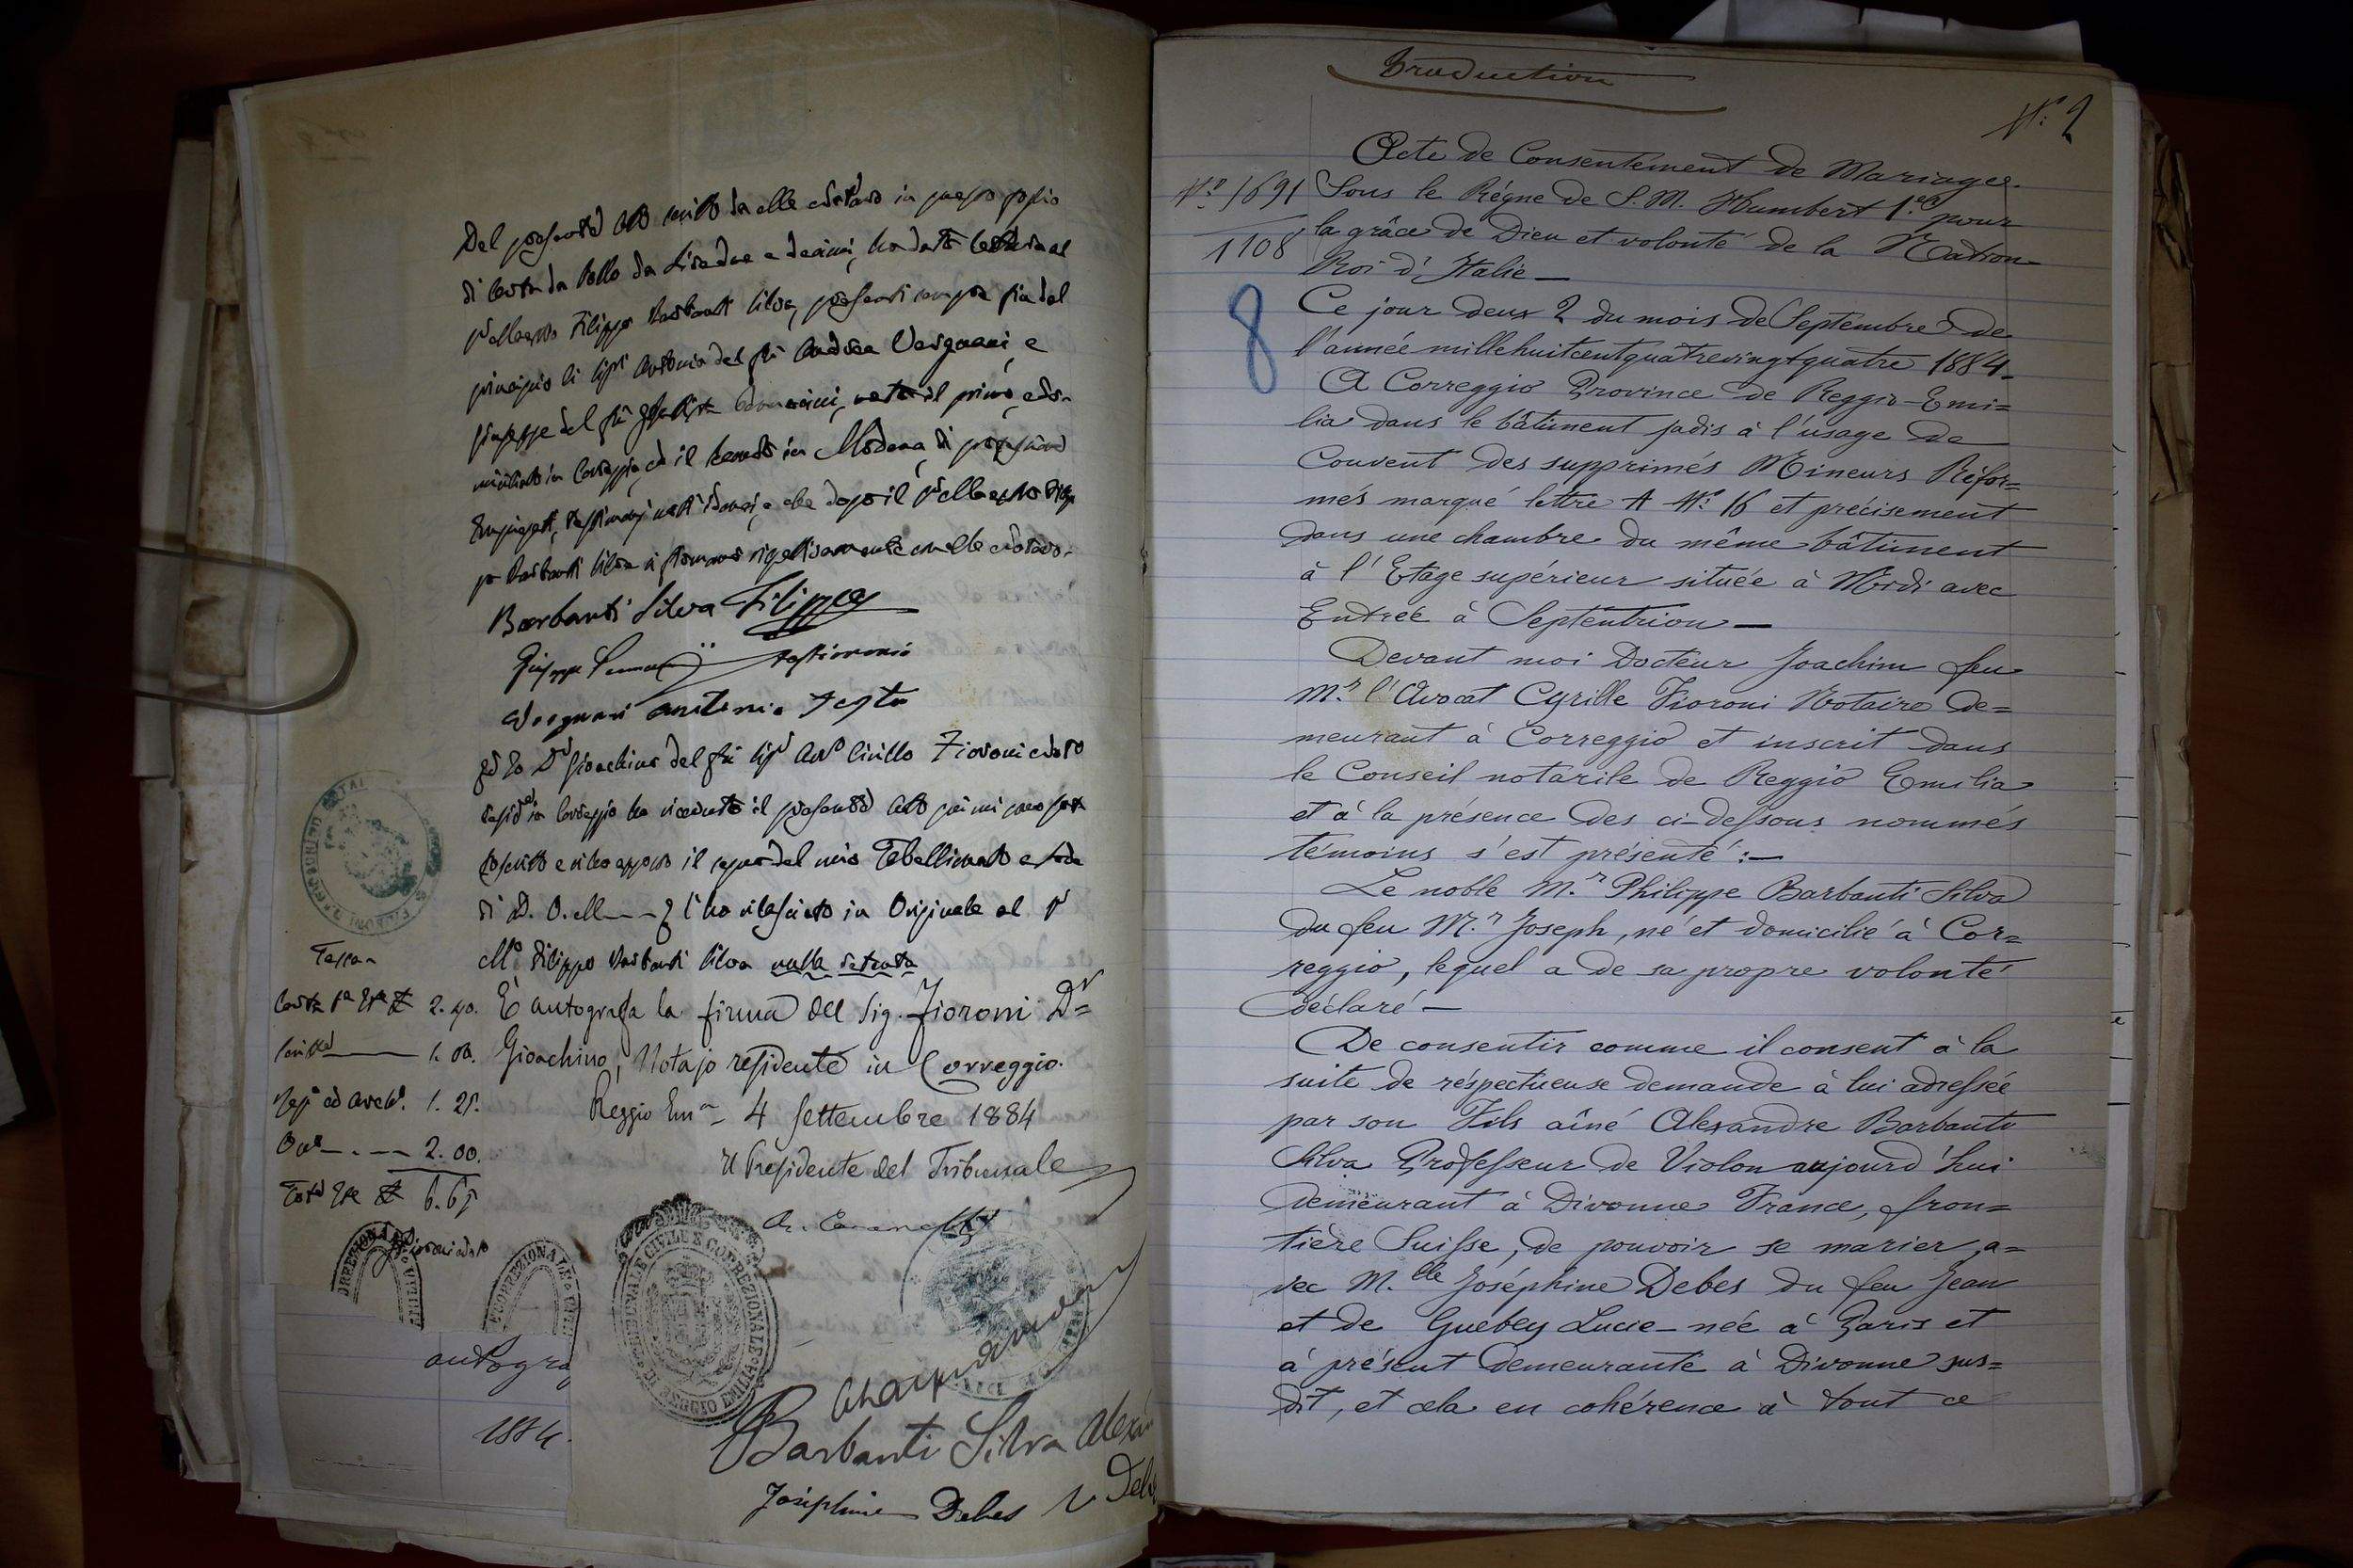 Del presente Atto scritto da me Notaro in questo foglio
di Carta da Bollo da Lire due e decimi, ho dato lettura al
Filippo Barbanti Silva, presenti sempre fin dal
principio li Sigri Antonio del fu Andrea Vergnani, e
Giuseppe del fu nato il primo, e
in Correggio, ed il secondo in Modena, di professione
Impiegati, testimonj noti idonei, e che dopo il
Barbanti Silva si firmano
Barbanti Silva Filippo
Giuseppe testimonio
Vergnani Antonio Testo
Ed Io Dr Gioachino del fu Sigr Avvo Cirillo Fioroni
in Correggio ho ricevuto il presente Atto
e vi ho apposto il segno del mio Tabellionato e fede
di e l'ho rilasciato in Originale al
Filippo Barbanti Silva
Tassa
Carta 2.40.
1. 00.
1. 25.
2. 00.
6. 65
È autografa la firma del Sig. Fioroni Dr=
Gioachino, Notajo residente in Correggio.
Reggio Ema - 4 Settembre 1884
Il Presidente del Tribunale
TRIBUNALE CIVILE E CORREZIONALE
DI REGGIO EMILIA
autogra
1884.
Barbanti Silva Alexan
Joséphine Debes
Traduction
No. 2
Acte de Consentement de Mariage.
No. 1691 Sous le Régne de S. M. Humbert 1.er pour
1108 la grâce de Dieu et volonté de la Nation
Roi d'Italie —
8
Ce jour deux 2 du mois de Septembre de
l'année millehuitcentquatrevingtquatre 1884-
A Correggio Province de Reggio-Emi=
lia dans le bâtiment jadis à l'usage de
Couvent des supprimés Mineurs Réfor=
més marqué lettre A No. 16 et précisement
dans une chambre du même bâtiment
à l'Etage supérieur située à Midi avec
Entrée à Septentrion —
Devant moi Docteur Joachim feu
M.r l'Avocat Cyrille Fioroni Notaire de=
meurant à Correggio et inscrit dans
le Conseil notarile de Reggio Emilia
et à la présence des ci-dessous nommés
témoins s'est présenté :—
Le noble M.r Philippe Barbanti Silva
du feu M.r Joseph, né et domicilié à Cor=
reggio, lequel a de sa propre volonté
déclaré —
De consentir comme il consent à la
suite de réspectueuse demande à lui adressée
par son Fils aîné Alexandre Barbanti
Silva Professeur de Violon aujourd'hui
demeurant à Divonne France, fron=
tière Suisse, de pouvoir se marier, a=
vec M.lle Joséphine Debes du feu Jean
et de Guebey Lucie - née à Paris et
à présent demeurante à Divonne sus=
dit, et cela en cohérence à tout ce